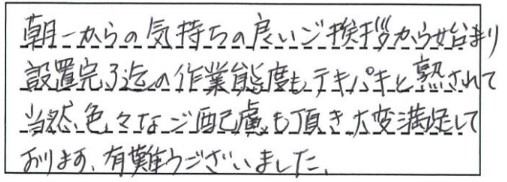 朝一からの気持ちの良いご挨拶から始まり
設置完了迄の作業態度もテキパキと熟されて
当然、色々なご配慮も頂き大変満足して
おります、有難うございました。